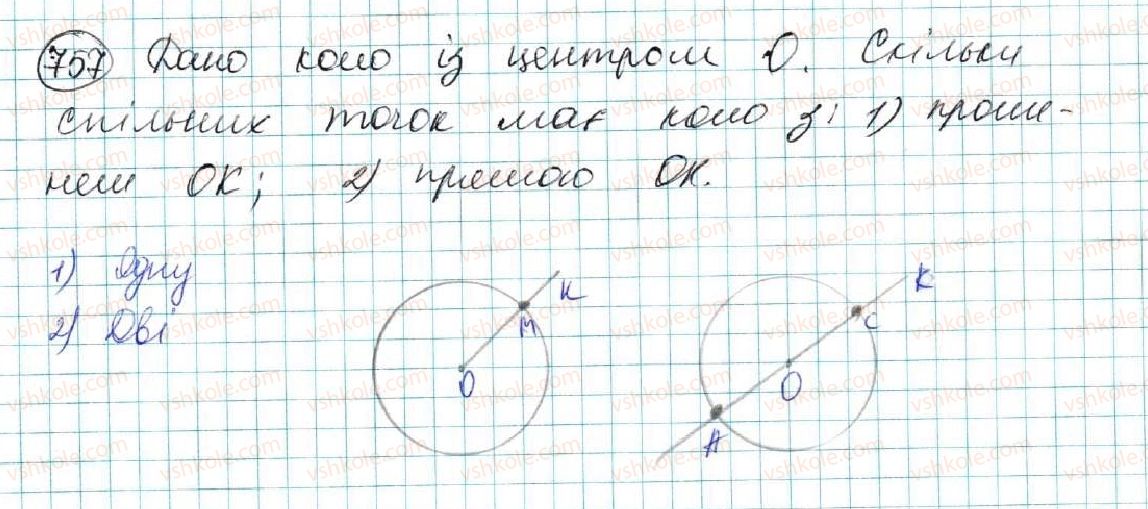 757 Дано коло із центром О. Скільки
спільних точок має коло з: 1) проме-
нем ОК; 2) прямою ОК.
1) Одну
2) Дві
К
М
О
К
С
О
А
vshkole.com